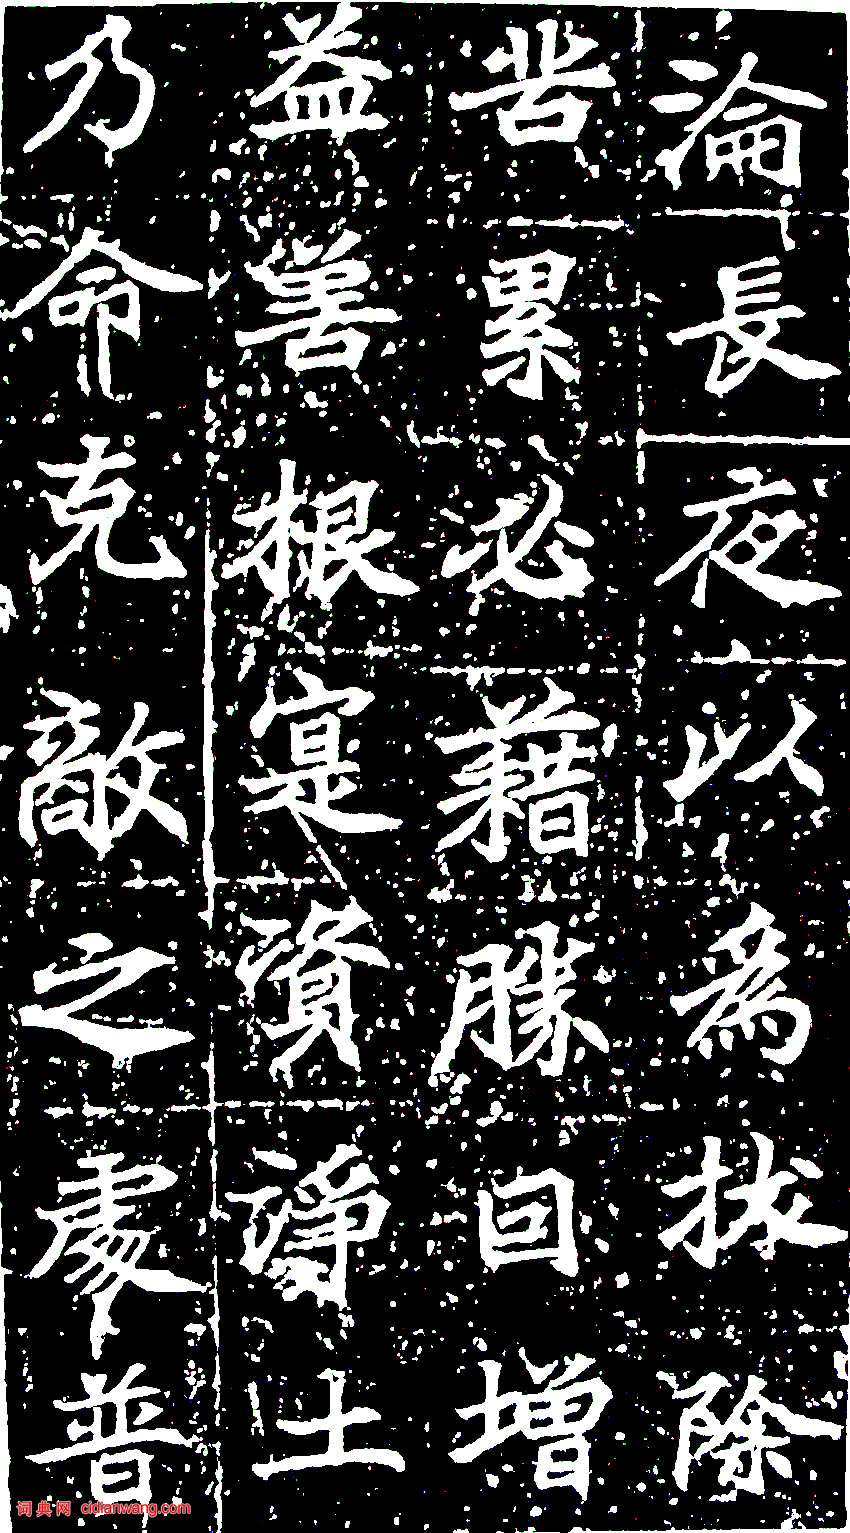 淪長夜以為拔除
苦累必藉勝因增
益善根寔資淨土
乃命克敵之處普
词典网 cidianwang.com